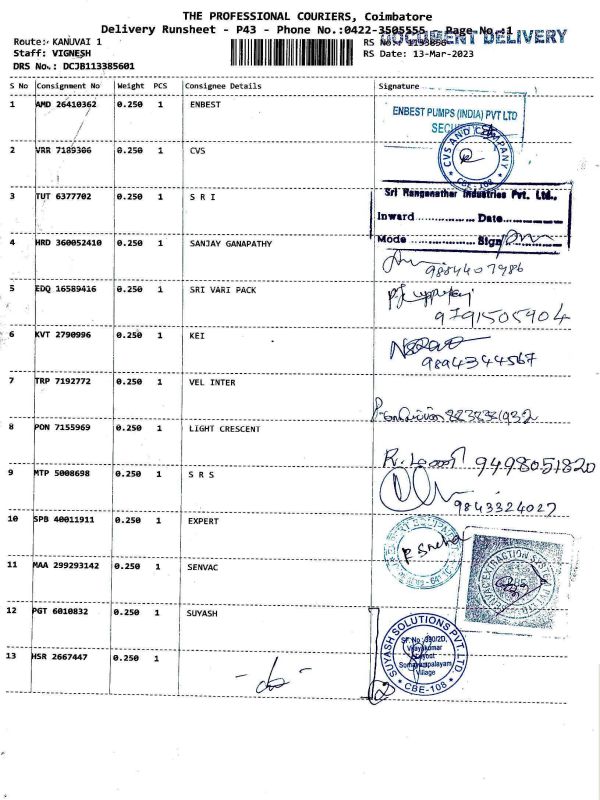 THE PROFESSIONAL COURIERS, Coimbatore
Delivery Runsheet - P43 - Phone No.:0422-3505555 Page No.:1
DOCUMENT DELIVERY
Route: KANUVAI 1
Staff: VIGNESH
DRS No.: DCJB113385601
RS No.:
RS Date: 13-Mar-2023
S No Consignment No Weight PCS Consignee Details Signature
1 AMD 26410362 0.250 1 ENBEST
ENBEST PUMPS (INDIA) PVT LTD
2 VRR 7189306 0.250 1 CVS
CVS AND COMPANY
CBE-108
3 TUT 6377702 0.250 1 S R I
Sri Ranganathar Industries Pvt. Ltd.,
Inward .................. Date..................
Mode .................. Sign
4 HRD 360052410 0.250 1 SANJAY GANAPATHY
9884407986
5 EDQ 16589416 0.250 1 SRI VARI PACK
9791505904
6 KVT 2790996 0.250 1 KEI
9894344567
7 TRP 7192772 0.250 1 VEL INTER
8 PON 7155969 0.250 1 LIGHT CRESCENT
9498051820
9 MTP 5008698 0.250 1 S R S
9843324027
10 SPB 40011911 0.250 1 EXPERT
11 MAA 299293142 0.250 1 SENVAC
12 PGT 6010832 0.250 1 SUYASH
SUYASH SOLUTIONS PVT. LTD
SF.No.:390/2D,
Vijayakumar
Layout
Somayampalayam
Village
CBE-108
13 HSR 2667447 0.250 1